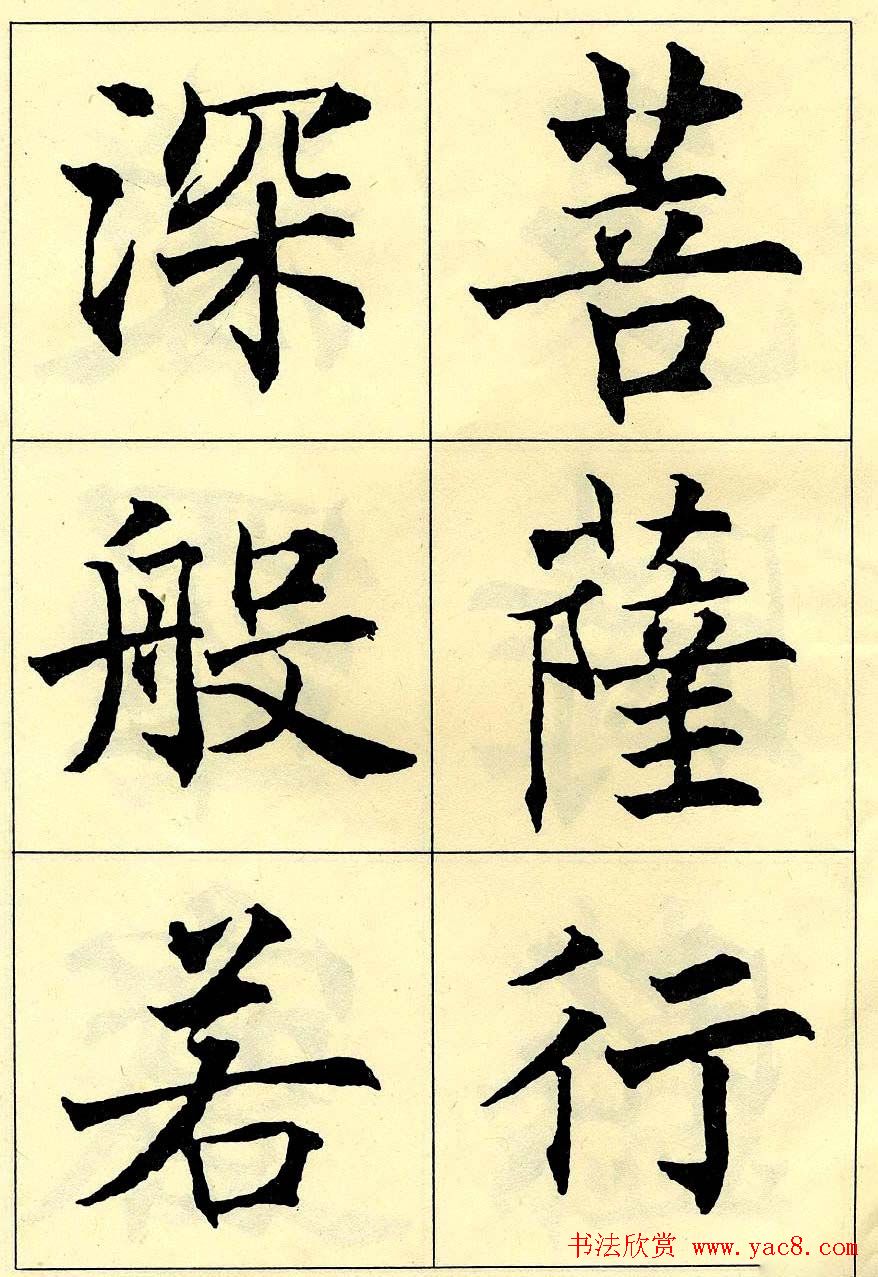 菩薩行
深般若
书法欣赏 www.yac8.com